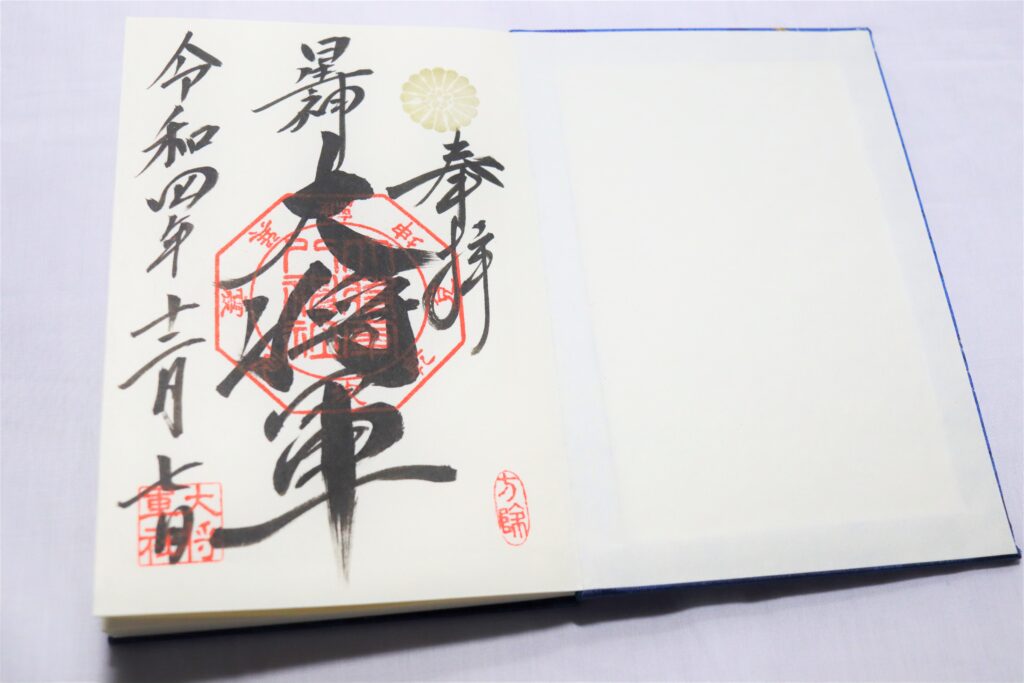 奉拝
方除
星神
大将軍
令和四年十二月七日
大将
軍社